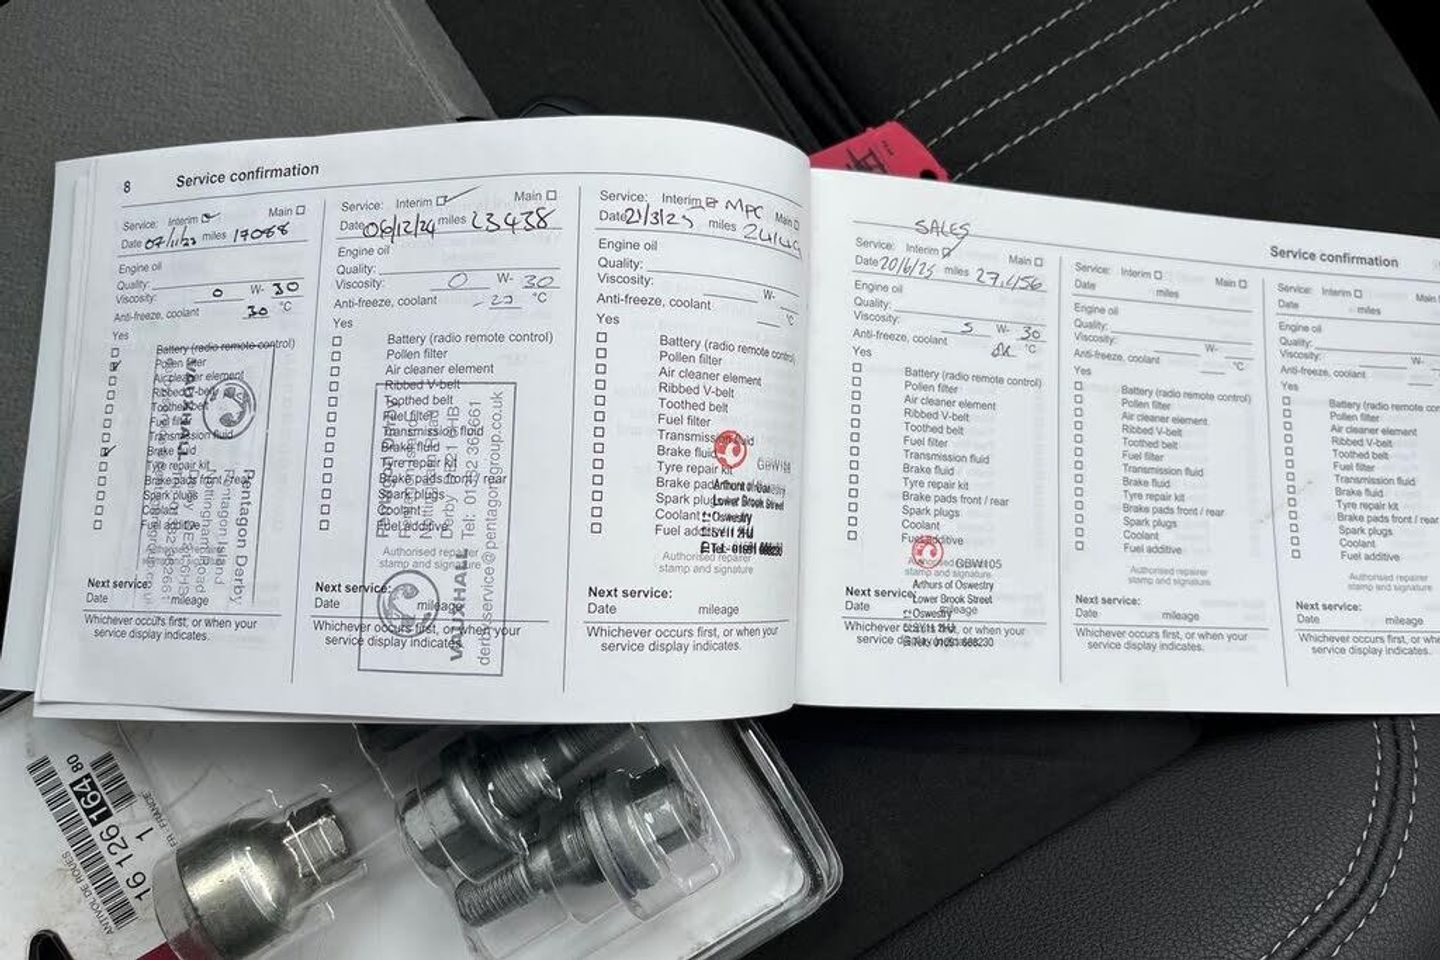 8 Service confirmation
Service: Interim Main
Date 07/11/23 miles 17088
Engine oil
Quality:
Viscosity: 0 W- 30
Anti-freeze, coolant 30 °C
Yes
Battery (radio remote control)
Pollen filter
Air cleaner element
Ribbed V-belt
Toothed belt
Fuel filter
Transmission fluid
Brake fluid
Tyre repair kit
Brake pads front / rear
Spark plugs
Coolant
Fuel additive
VAUXHALL
Pentagon Derby
Pentagon Island
Nottingham Road
Next service:
Date mileage
Whichever occurs first, or when your
service display indicates.
Service: Interim Main
Date 06/12/24 miles 23438
Engine oil
Quality:
Viscosity: 0 W- 30
Anti-freeze, coolant °C
Yes
Battery (radio remote control)
Pollen filter
Air cleaner element
Ribbed V-belt
Toothed belt
Fuel filter
Transmission fluid
Brake fluid
Tyre repair kit
Brake pads front / rear
Spark plugs
Coolant
Fuel additive
Authorised repairer
stamp and signature
VAUXHALL
Next service:
Date mileage
Whichever occurs first, or when your
service display indicates.
Service: Interim MPC Main
Date 21/3/25 miles
Engine oil
Quality:
Viscosity: W-
Anti-freeze, coolant °C
Yes
Battery (radio remote control)
Pollen filter
Air cleaner element
Ribbed V-belt
Toothed belt
Fuel filter
Transmission fluid
Brake fluid
Tyre repair kit
Brake pads
Spark plugs
Coolant
Fuel additive
Lower Brook Street
Oswestry
SY11 2HJ
Tel: 01691 668230
Authorised repairer
stamp and signature
Next service:
Date mileage
Whichever occurs first, or when your
service display indicates.
Service confirmation
SALES
Service: Interim Main
Date 20/6/25 miles 27,456
Engine oil
Quality:
Viscosity: 5 W- 30
Anti-freeze, coolant OK °C
Yes
Battery (radio remote control)
Pollen filter
Air cleaner element
Ribbed V-belt
Toothed belt
Fuel filter
Transmission fluid
Brake fluid
Tyre repair kit
Brake pads front / rear
Spark plugs
Coolant
Fuel additive
Authorised
stamp and signature
GBW105
Arthurs of Oswestry
Lower Brook Street
Oswestry
SY11 2HJ
Tel: 01691 668230
Next service:
Date mileage
Whichever occurs first, or when your
service display indicates.
Service: Interim Main
Date miles
Engine oil
Quality:
Viscosity: W-
Anti-freeze, coolant °C
Yes
Battery (radio remote control)
Pollen filter
Air cleaner element
Ribbed V-belt
Toothed belt
Fuel filter
Transmission fluid
Brake fluid
Tyre repair kit
Brake pads front / rear
Spark plugs
Coolant
Fuel additive
Authorised repairer
stamp and signature
Next service:
Date mileage
Whichever occurs first, or when your
service display indicates.
Service: Interim Main
Date miles
Engine oil
Quality:
Viscosity: W-
Anti-freeze, coolant
Yes
Battery (radio remote
Pollen filter
Air cleaner element
Ribbed V-belt
Toothed belt
Fuel filter
Transmission fluid
Brake fluid
Tyre repair kit
Brake pads front / rear
Spark plugs
Coolant
Fuel additive
Authorised repairer
stamp and signature
Next service:
Date mileage
Whichever occurs first, or
service display indicates.
ANTIVOL DE ROUES
16 126 164 80
1
FR-FRANCE